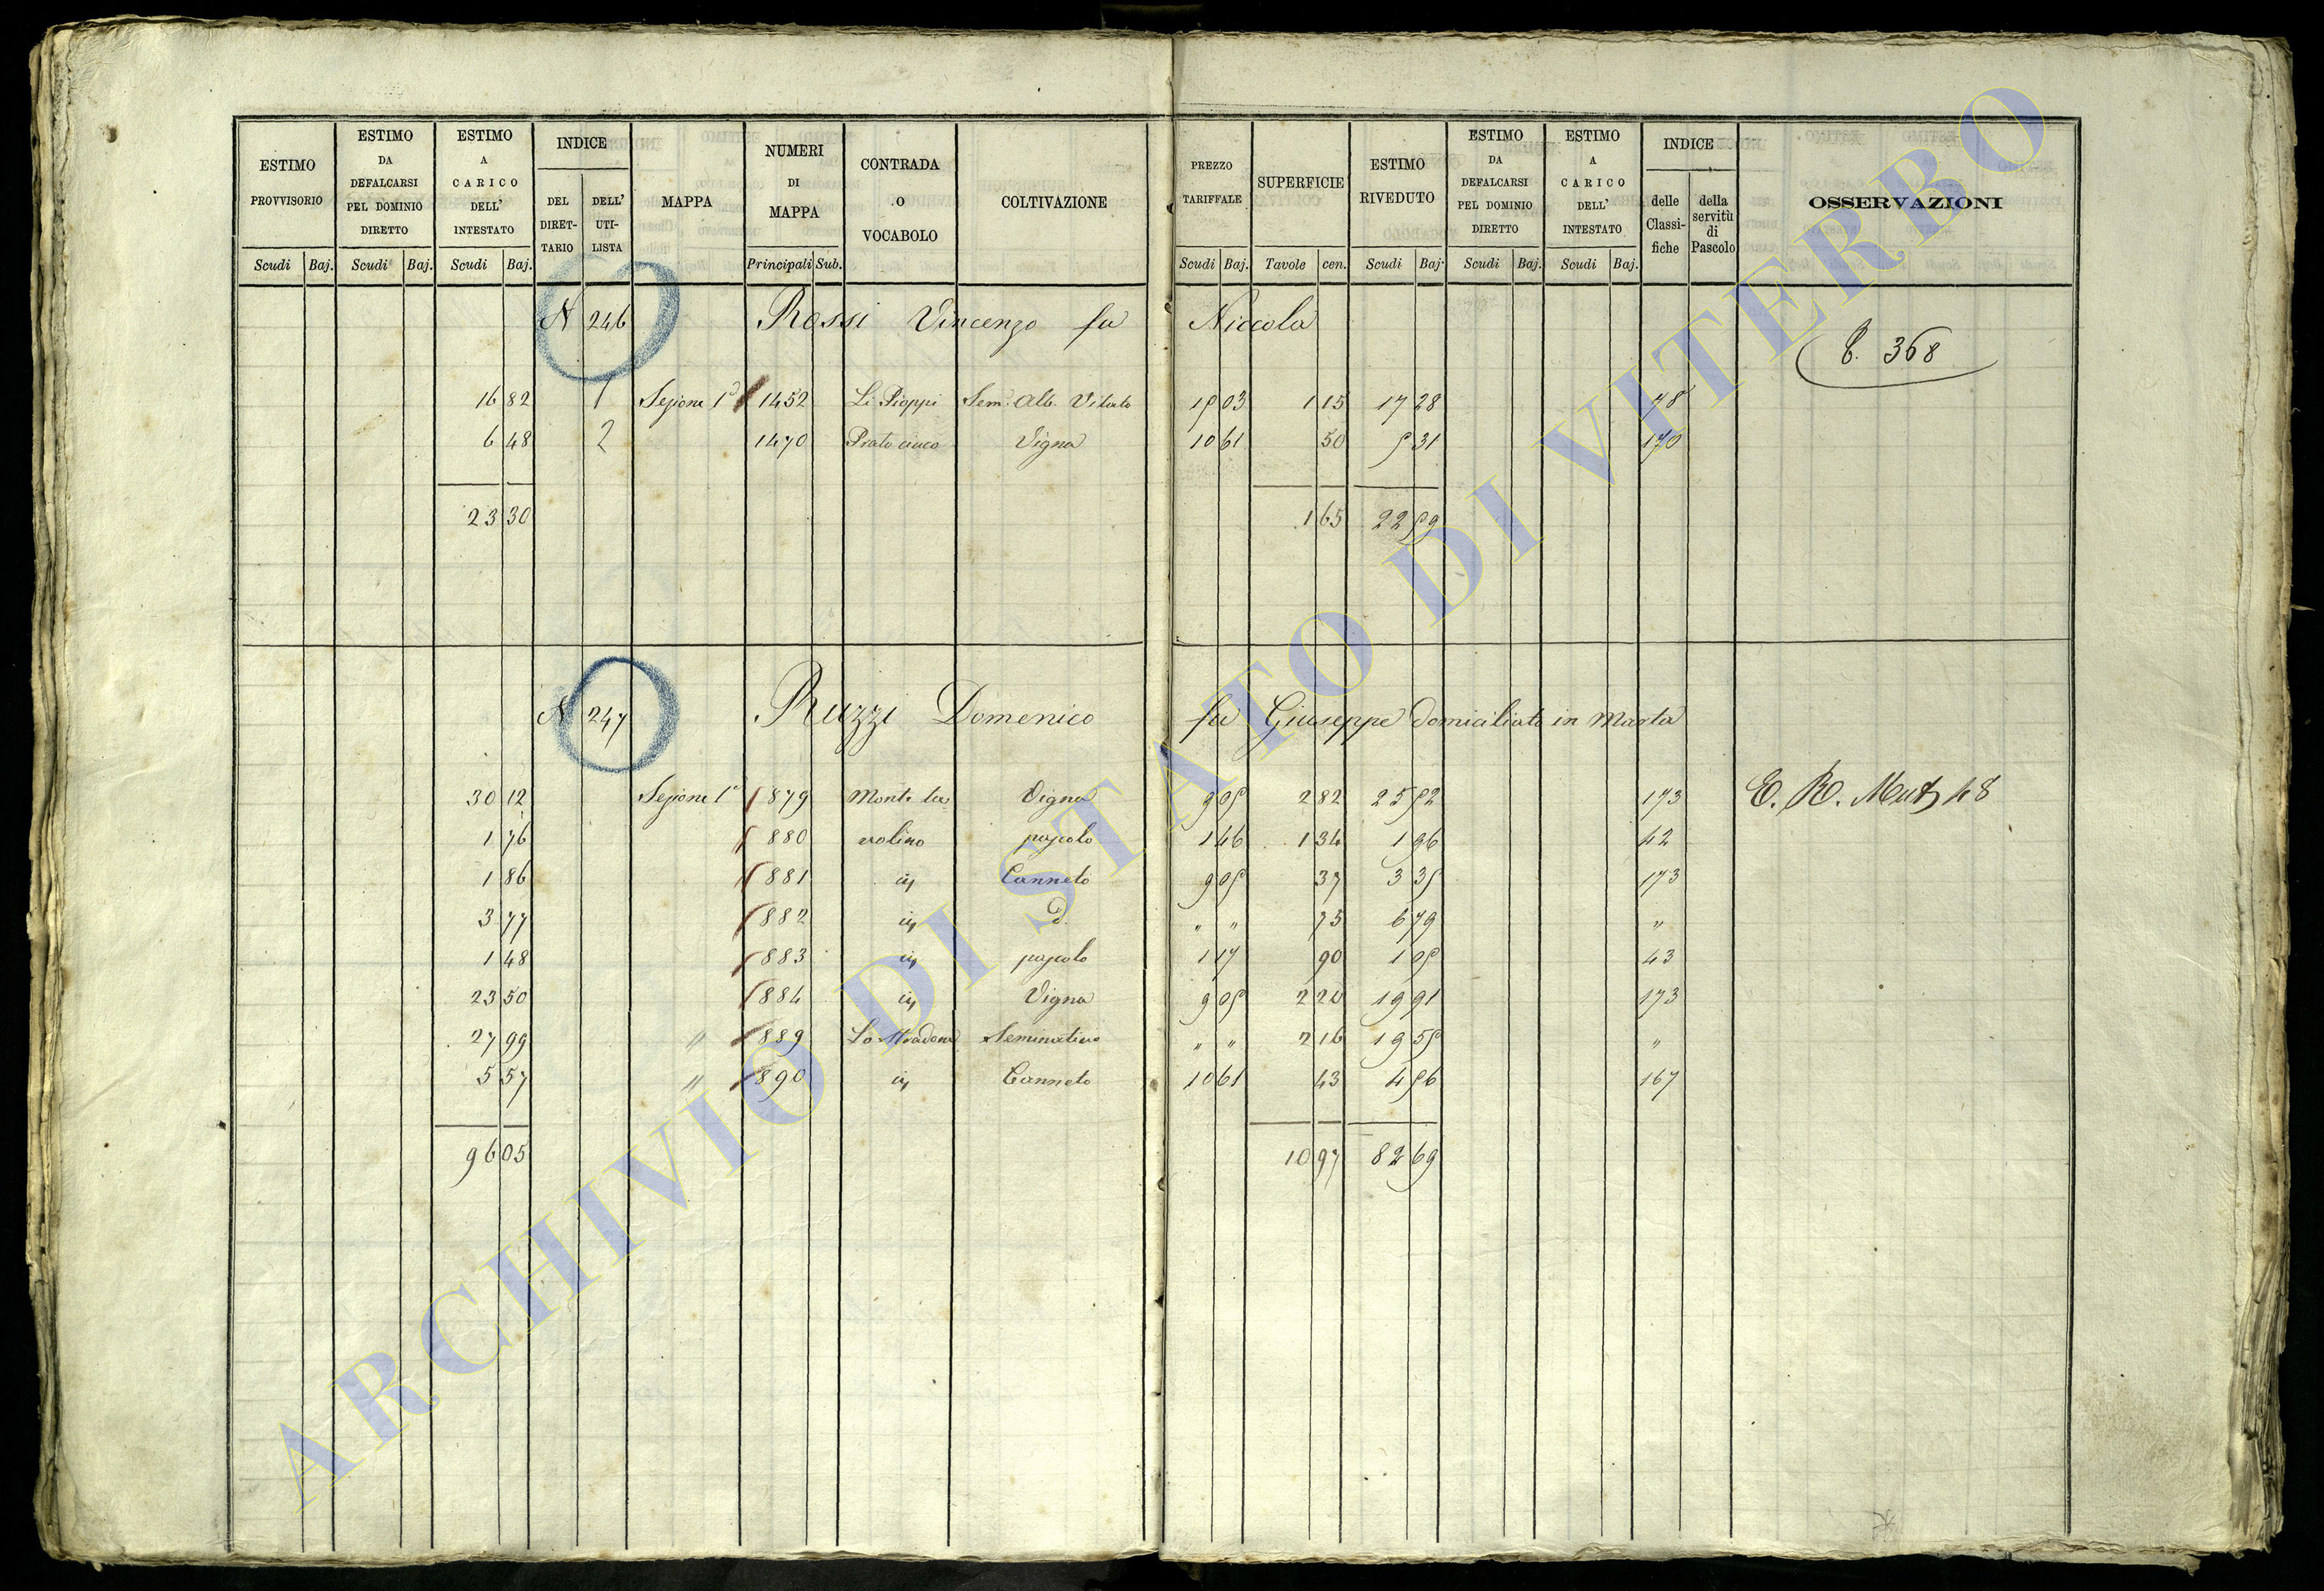 ESTIMO PROVVISORIO Scudi Baj. ESTIMO DA DEFALCARSI PEL DOMINIO DIRETTO Scudi Baj. ESTIMO A CARICO DELL' INTESTATO Scudi Baj. INDICE DEL DIRETTARIO DELL' UTILISTA MAPPA NUMERI DI MAPPA Principali Sub. CONTRADA O VOCABOLO COLTIVAZIONE PREZZO TARIFFALE Scudi Baj. SUPERFICIE Tavole cen. ESTIMO RIVEDUTO Scudi Baj. ESTIMO DA DEFALCARSI PEL DOMINIO DIRETTO Scudi Baj. ESTIMO A CARICO DELL' INTESTATO Scudi Baj. INDICE delle Classifiche della servitù di Pascolo OSSERVAZIONI
N 246 Rossi Vincenzo fu Niccola
368
16 82 1 Sezione 1ª 1452 Li Pioppi Sem. Alb. Vitato 15 03 1 15 17 28 78
6 48 2 1470 Prato Vigna 10 61 50 5 31 170
23 30 1 65 22 59
N 247 Ruzzi Domenico fu Giuseppe domiciliato in Marta
30 12 Sezione 1ª 879 Monte la Vigna 9 05 2 82 25 52 173 E. R. 48
1 76 880 volino pascolo 1 46 1 34 1 96 42
1 86 881 Canneto 9 05 37 3 35 173
3 77 882 d. " " 75 6 79 "
1 48 883 pascolo 1 17 90 1 05 43
23 50 884 Vigna 9 05 2 20 19 91 173
27 99 " 889 Lo Stradone Seminativo " " 2 16 19 55 "
5 57 " 890 Canneto 10 61 43 4 56 167
96 05 10 97 82 69
ARCHIVIO DI STATO DI VITERBO